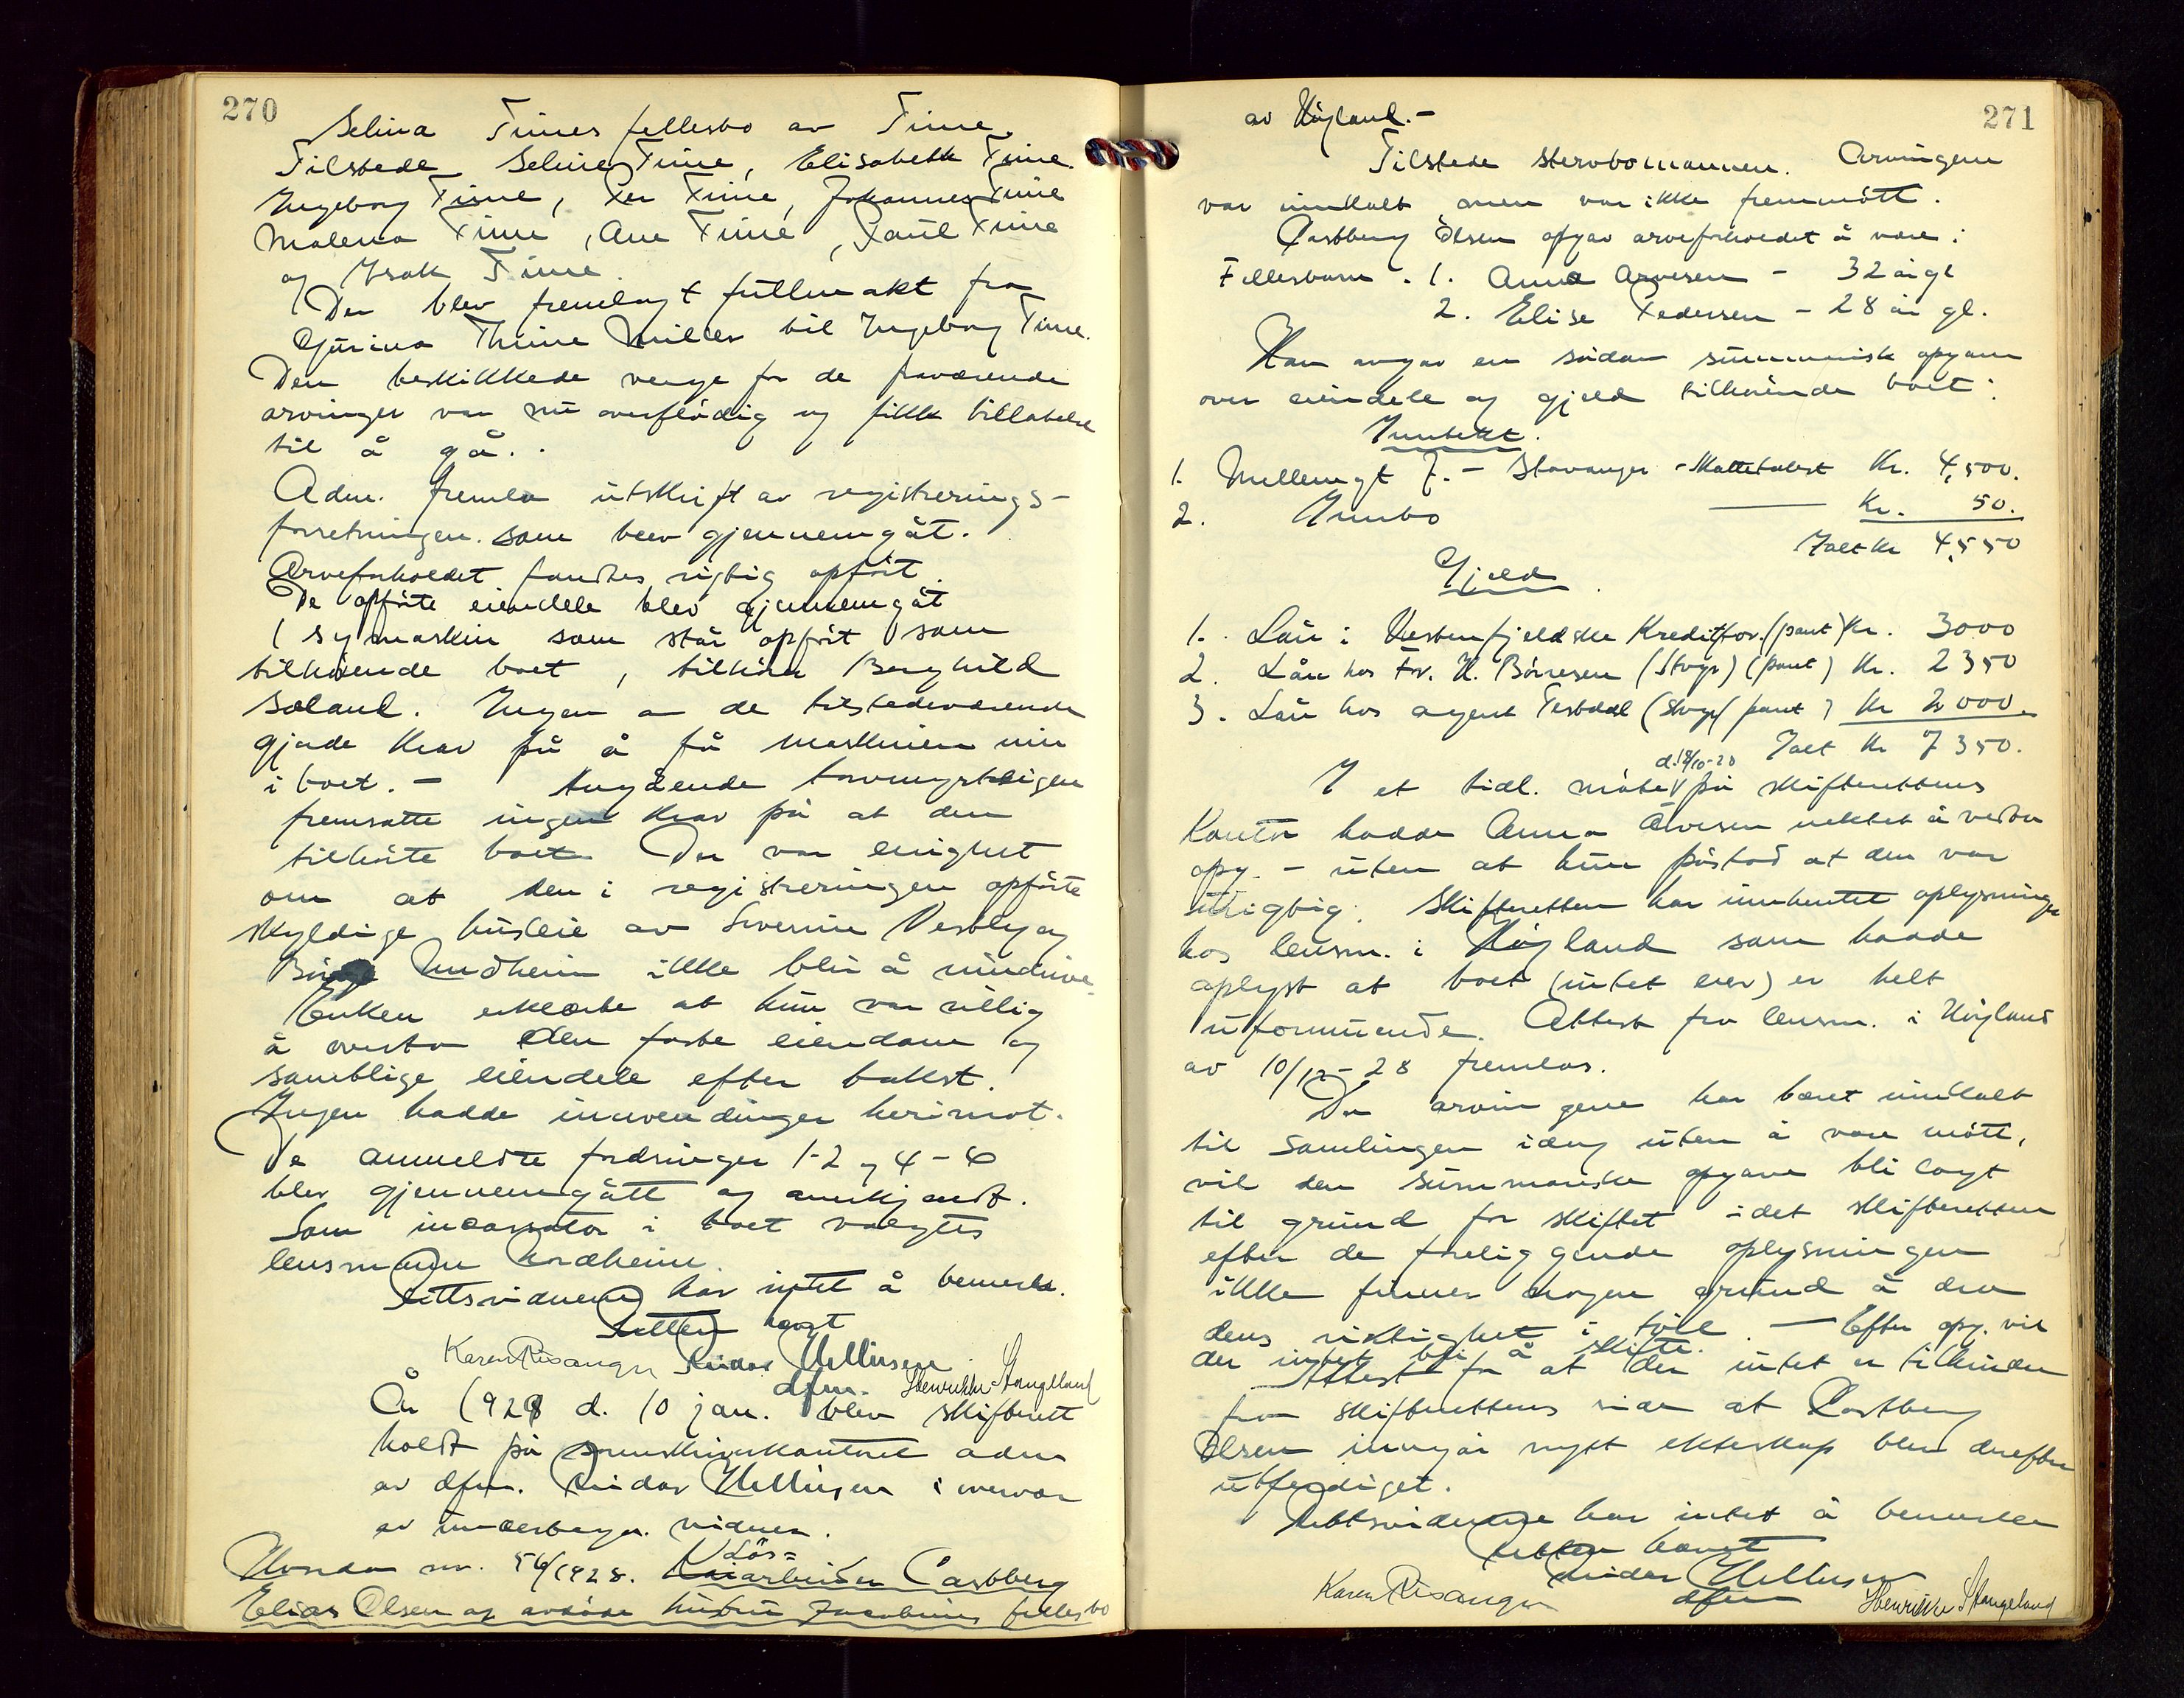 270
Selina Times fellesbo av Time.
Tilstede Seline Time, Elisabeth Time
Ingeborg Time, Per Time, Johannes Time
Malena Time, Ane Time, Paul Time
og Isak Time.
Der blev fremlagt fullmakt fra
Gurina Thime Miller til Ingeborg Time.
Den beskikkede verge for de fraværende
arvinger var nu overflödig og fikk tillatelse
til å gå.
Adm. fremla utskrift av registrerings-
forretningen som blev gjennemgåt.
Arveforholdet fandtes rigtig opfört.
De opförte eiendele blev gjennemgåt
1 symaskin som står opfört som
tilhörende boet, tilhörer Borghild
Soland. Ingen av de tilstedeværende
gjorde krav på å få maskinen inn
i boet. - Angående torvmyrteigen
fremsatte ingen krav på at den
tilhörte boet. Der var enighet
om at den i registreringen opförte
skyldige husleie av Severin Vestly og
Undheim ikke blir å inndrive.
Enken erklærte at hun var villig
å overta den faste eiendom og
samtlige eiendele efter takst.
Ingen hadde innvendinger herimot.
De anmeldte fordringer 1-2 og 4-6
blev gjennemgått og anerkjendt.
Som incassator i boet valgtes
lensmann
Rettsvidnene har intet å bemerke.
Retten hævt
Karen Risanger Reidar Mellusen
dfm. Henrikke Stangeland
År 1929 d. 10 jan. blev skifterett
holdt på sorenskriverkontoret adm
av dfm. Reidar Mellusen i overvær
av undertegn. vidner.
Hvorda nr. 56/1928. Lös=
arbeider Castberg
Elias Olsen og avdöde hustru Jacobines fellesbo
271
av Höyland.-
Tilstede stervbomannen. Arvingene
var innkalt men var ikke fremmött.
Castberg Olsen opgav arveforholdet å være:
Fellesbarn. 1. Anna Arvesen - 32 år gl
2. Elise Pedersen - 28 år gl.
Han avgav en sådan summarisk opgave
over eiendele og gjeld tilhörende boet:
Inntekt.
1. - Stavanger - Skattetakst Kr. 4,500.
2. Innbo Kr. 50.
Ialt kr 4,550
Gjeld
1. Lån i Vestenfjeldske Kreditfor. (pant) Kr. 3000
2. Lån hos Frv. H. Börresen (Stvgr) (pant) Kr. 2350
3. Lån hos agent Testdal (Stvgr) (pant) Kr 2000.
Ialt Kr 7350.
I et tidl. möte d. 18/10-28 på skifterettens
kontor hadde Anna Arvesen nektet å vedta
opg. - uten at hun påstod at den var
urigtig. Skifteretten har innhentet oplysninger
hos lensm. i Höyland som hadde
oplyst at boet (intet eier) er helt
uformuende. Attest fra lensm. i Höyland
av 10/12-28 fremlas.
Da arvingene har været innkalt
til samlingen idag uten å være mött,
vil den summariske opgave bli lagt
til grund for skiftet idet skifteretten
efter de foreliggende oplysninger
ikke finner nogen grund å dra
dens riktighet i tvil. - Efter opg. vil
der intet bli å skifte.
Attest for at der intet er til hinder
fra skifterettens side at Castberg
Olsen inngår nytt ekteskap blev derefter
utferdiget.
Rettsvidnene har intet å bemerke
Retten hævet
Reidar Mellusen
Karen Risanger dfm Henrikke Stangeland